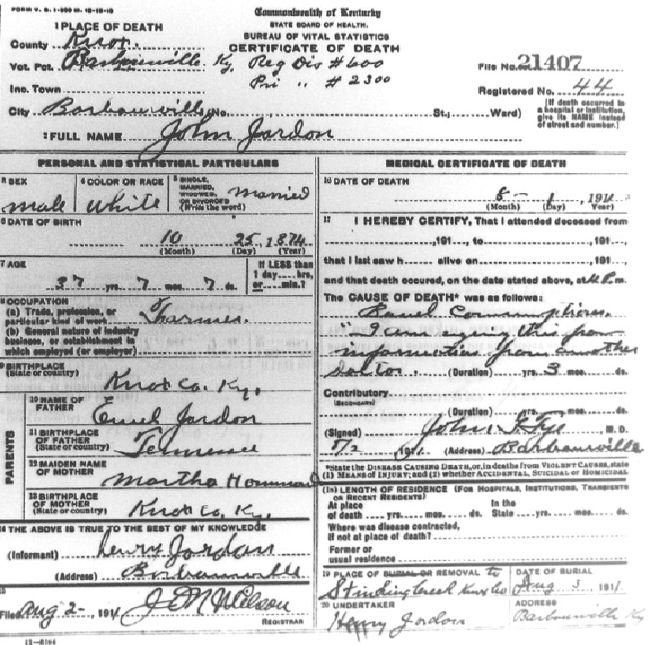 FORM V. S. 1-
Commonwealth of Kentucky
STATE BOARD OF HEALTH.
BUREAU OF VITAL STATISTICS
CERTIFICATE OF DEATH
1 PLACE OF DEATH
County Knox.
Vot. Pct. Barbourville Ky Reg Dis # 600
Pri " # 2300
File No. 21407
Inc. Town
Registered No. 44
City Barbourville (No. St.; Ward)
[If death occurred in a hospital or institution, give its NAME instead of street and number.]
2 FULL NAME John Jordon
PERSONAL AND STATISTICAL PARTICULARS
3 SEX male
4 COLOR OR RACE White
5 SINGLE, MARRIED, WIDOWED, OR DIVORCED (Write the word) Married
6 DATE OF BIRTH
10 25, 1874
(Month) (Day) (Year)
7 AGE
37 yrs. 7 mos. 7 ds.
If LESS than 1 day....hrs. or.....min.?
8 OCCUPATION
(a) Trade, profession, or particular kind of work Farmer.
(b) General nature of industry business, or establishment in which employed (or employer)
9 BIRTHPLACE
(State or country) Knox Co. Ky.
PARENTS
10 NAME OF FATHER Jordon
11 BIRTHPLACE OF FATHER
(State or country)
12 MAIDEN NAME OF MOTHER Martha
13 BIRTHPLACE OF MOTHER
(State or country) Knox Co. Ky.
14 THE ABOVE IS TRUE TO THE BEST OF MY KNOWLEDGE
(Informant) Henry Jordan
(Address) Barbourville
15
Filed Aug 2- 1911
REGISTRAR
MEDICAL CERTIFICATE OF DEATH
16 DATE OF DEATH
8- 1, 1911
(Month) (Day) (Year)
17 I HEREBY CERTIFY, That I attended deceased from
, 191 , to , 191 ,
that I last saw h alive on , 191 ,
and that death occured, on the date stated above, at 4 P. m.
The CAUSE OF DEATH* was as follows:
Consumption.
"I am giving this from
information from another
Doctor." (Duration) yrs. 3 mos. ds.
Contributory
(SECONDARY)
(Duration) yrs. mos. ds.
(Signed) John , M. D.
8/2 1911 (Address) Barbourville
*State the DISEASE CAUSING DEATH, or, in deaths from VIOLENT CAUSES, state (1) MEANS OF INJURY; and (2) whether ACCIDENTAL SUICIDAL OR HOMICIDAL
18) LENGTH OF RESIDENCE (FOR HOSPITALS, INSTITUTIONS, TRANSIENTS OR RECENT RESIDENTS)
At place of death yrs. mos. ds. In the State yrs. mos. ds.
Where was disease contracted, if not at place of death?
Former or usual residence
19 PLACE OF BURIAL OR REMOVAL to
Stinking Creek Knox Co
DATE OF BURIAL
Aug 3, 1911
20 UNDERTAKER
Henry Jordon
ADDRESS
Barbourville Ky